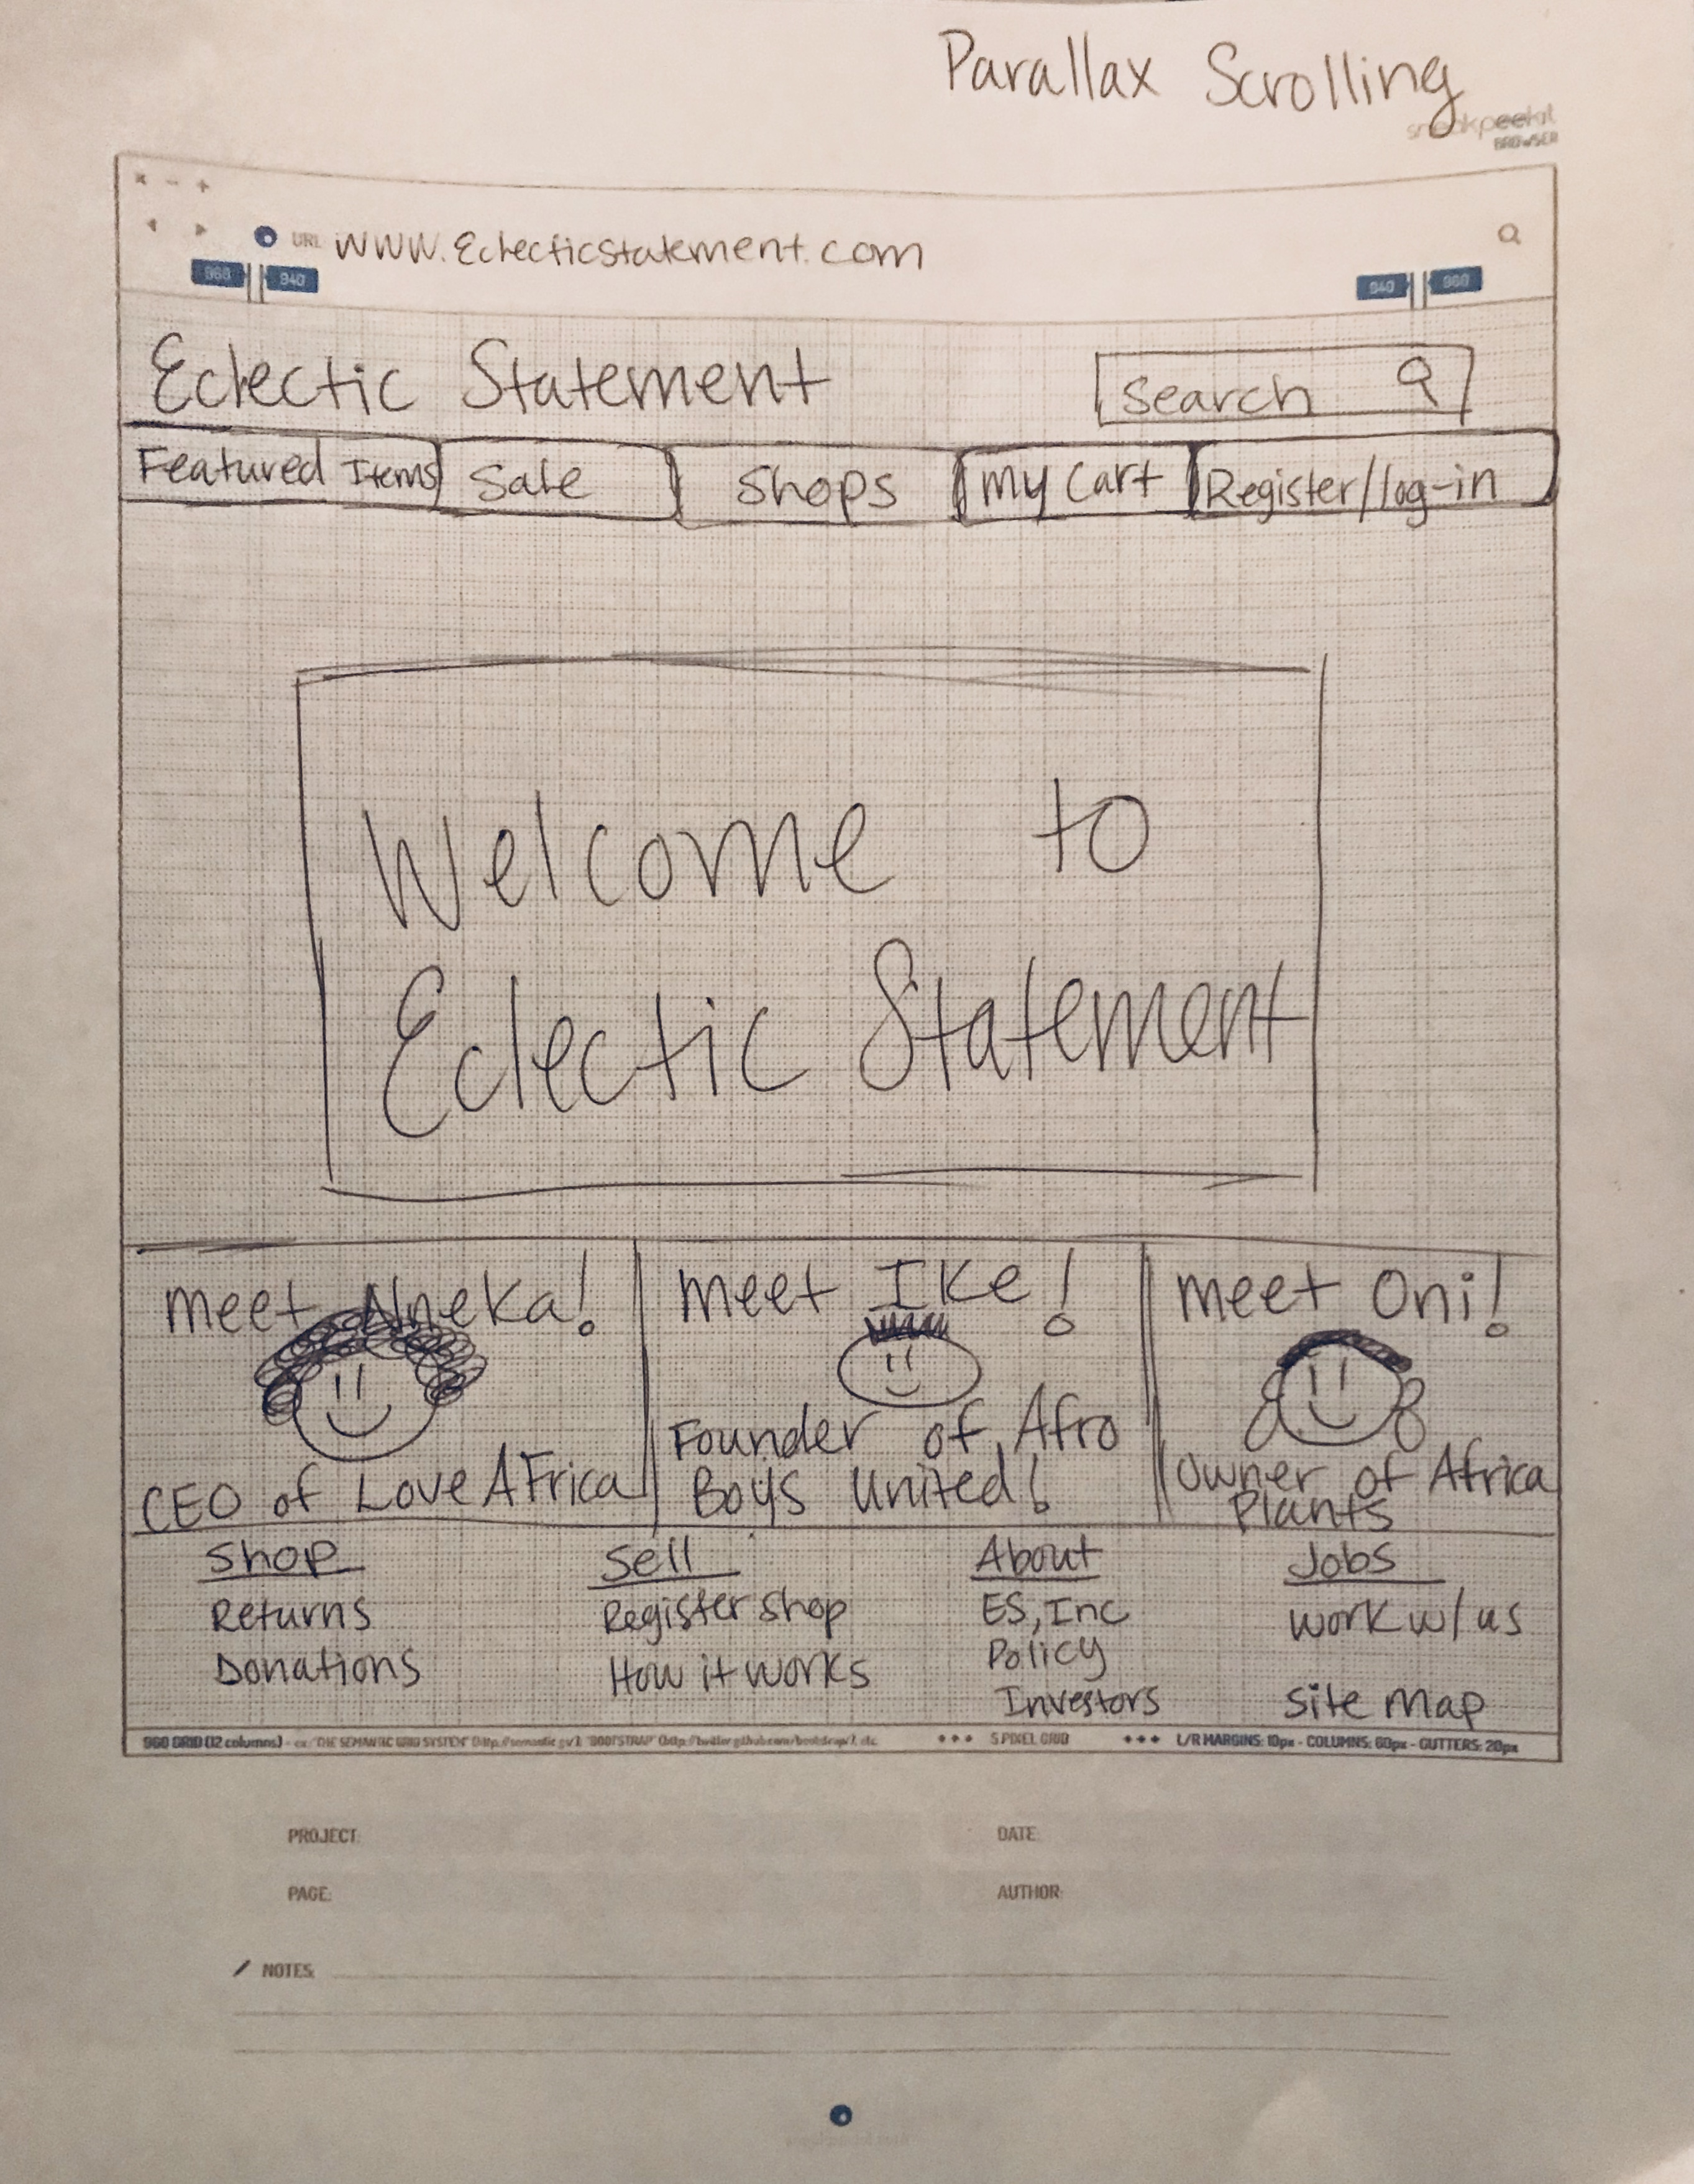 Parallax Scrolling
sneakpeekit
BROWSER
URL www.Eclecticstatement.com
960 940 940 960
Eclectic Statement
Search
Featured Items Sale Shops My Cart Register/log-in
Welcome to
Eclectic Statement
meet Nneka!
CEO of Love Africa
meet Ike!
Founder of Afro
Boys United!
meet Oni!
Owner of Africa
Plants
Shop
Returns
Donations
Sell
Register shop
How it works
About
ES, Inc
Policy
Investors
Jobs
work w/ us
Site Map
960 GRID (12 columns) - ex: "THE SEMANTIC GRID SYSTEM" "BOOTSTRAP" etc. 5 PIXEL GRID L/R MARGINS: 10px - COLUMNS: 60px - GUTTERS: 20px
PROJECT: DATE:
PAGE: AUTHOR:
NOTES: